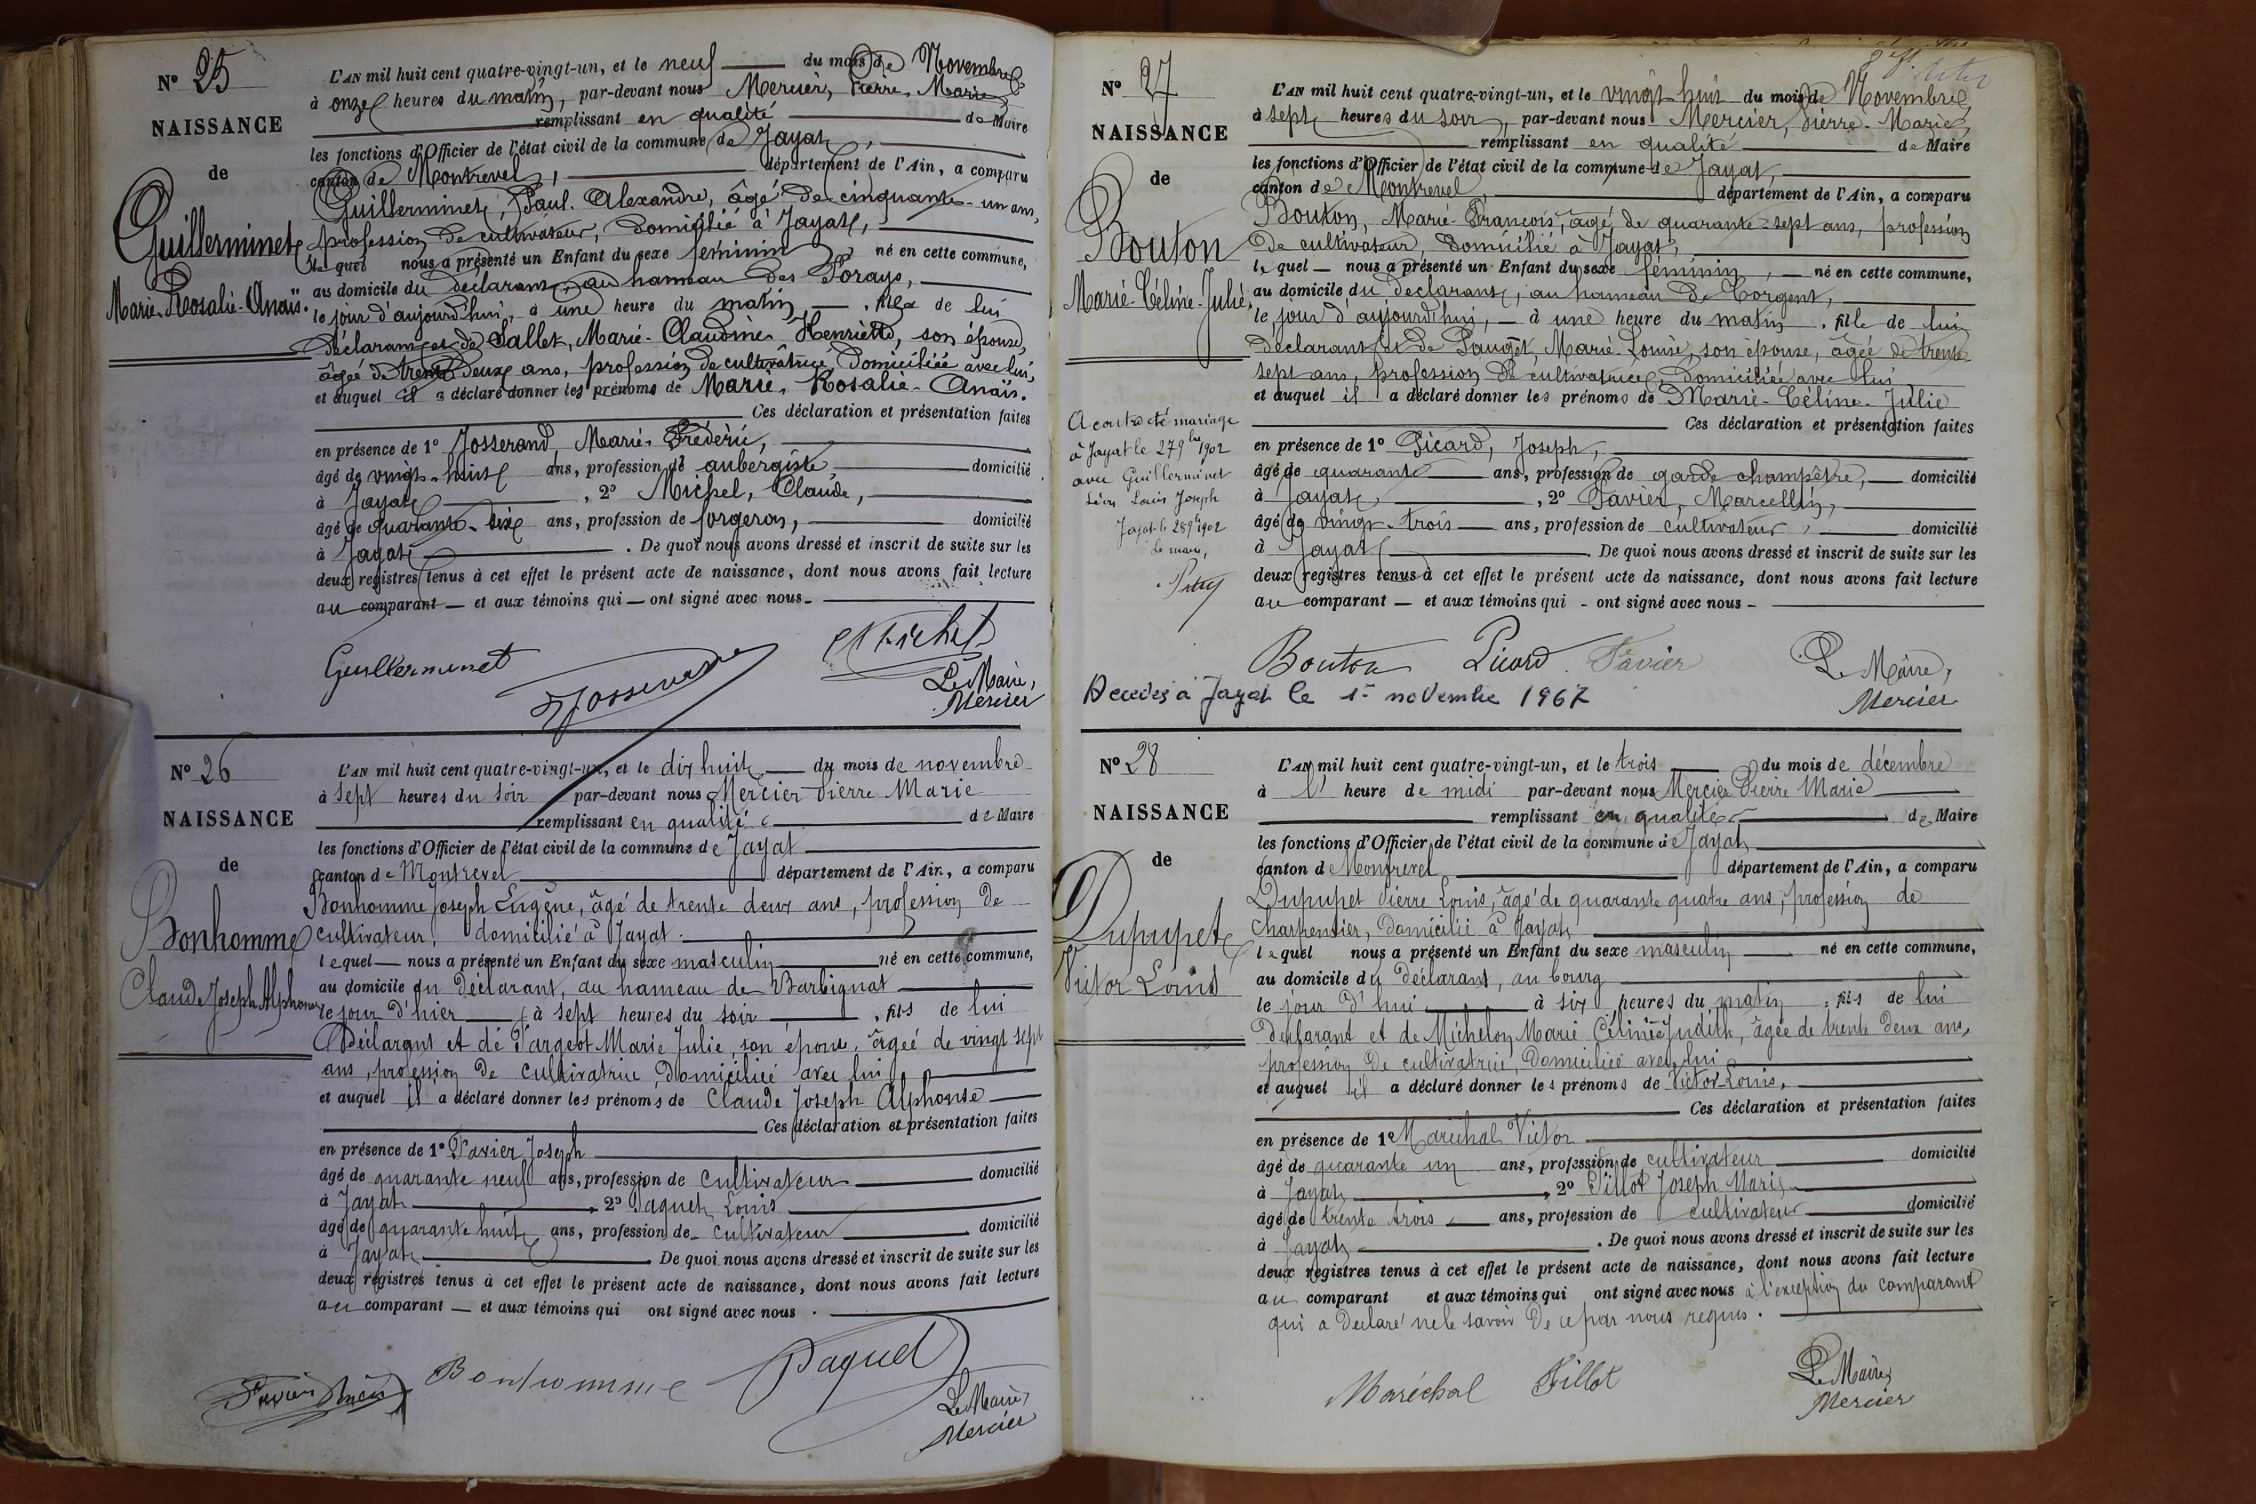 N° 25
NAISSANCE
de
Guillerminet
Marie-Rosalie-Anaïs.
L'AN mil huit cent quatre-vingt-un, et le neuf du mois de Novembre
à onze heures du matin, par-devant nous Mercier, Pierre-Marie
remplissant en qualité de Maire
les fonctions d'Officier de l'état civil de la commune de Jayat,
canton de Montrevel, département de l'Ain, a comparu
Guillerminet, Paul-Alexandre, âgé de cinquante-un ans,
profession de cultivateur, domicilié à Jayat,
lequel nous a présenté un Enfant du sexe féminin, né en cette commune,
au domicile du déclarant, au hameau des Porays,
le jour d'aujourd'hui, à une heure du matin, fille de lui
déclarant et de Sallet, Marie-Claudine-Henriette, son épouse,
âgée de trente deux ans, profession de cultivatrice domiciliée avec lui,
et auquel il a déclaré donner les prénoms de Marie-Rosalie-Anaïs.
Ces déclaration et présentation faites
en présence de 1° Josserand, Marie-Frédéric,
âgé de vingt-huit ans, profession de aubergiste domicilié
à Jayat, 2° Michel, Claude,
âgé de quarante-six ans, profession de forgeron, domicilié
à Jayat. De quoi nous avons dressé et inscrit de suite sur les
deux registres tenus à cet effet le présent acte de naissance, dont nous avons fait lecture
au comparant et aux témoins qui ont signé avec nous.
Guillerminet Josserand Michel
Le Maire,
Mercier
N° 26
NAISSANCE
de
Bonhomme
Claude Joseph Alphonse
L'AN mil huit cent quatre-vingt-un, et le dix huit du mois de novembre
à sept heures du soir par-devant nous Mercier Pierre Marie
remplissant en qualité de Maire
les fonctions d'Officier de l'état civil de la commune de Jayat
canton de Montrevel département de l'Ain, a comparu
Bonhomme Joseph Eugène, âgé de trente deux ans, profession de
cultivateur, domicilié à Jayat.
lequel nous a présenté un Enfant du sexe masculin né en cette commune,
au domicile du déclarant, au hameau de Barbignat
le jour d'hier à sept heures du soir, fils de lui
Déclarant et de Pargeot Marie Julie, son épouse, âgée de vingt sept
ans, profession de cultivatrice, domiciliée avec lui
et auquel il a déclaré donner les prénoms de Claude Joseph Alphonse
Ces déclaration et présentation faites
en présence de 1° Favier Joseph
âgé de quarante neuf ans, profession de cultivateur domicilié
à Jayat, 2° Paquet Louis
âgé de quarante huit ans, profession de cultivateur domicilié
à Jayat. De quoi nous avons dressé et inscrit de suite sur les
deux registres tenus à cet effet le présent acte de naissance, dont nous avons fait lecture
au comparant et aux témoins qui ont signé avec nous.
Favier Bonhomme Paquet
Le Maire,
Mercier
N° 27
NAISSANCE
de
Bouton
Marie-Céline-Julie,
A contracté mariage
à Jayat le 27 9bre 1902
avec Guillerminet
Léon Louis Joseph
Jayat le 28 9bre 1902
le maire,
L'AN mil huit cent quatre-vingt-un, et le vingt-huit du mois de Novembre
à sept heures du soir, par-devant nous Mercier, Pierre-Marie,
remplissant en qualité de Maire
les fonctions d'Officier de l'état civil de la commune de Jayat,
canton de Montrevel, département de l'Ain, a comparu
Bouton, Marie-François, âgé de quarante-sept ans, profession
de cultivateur, domicilié à Jayat,
lequel nous a présenté un Enfant du sexe féminin, né en cette commune,
au domicile du déclarant, au hameau de Corgent,
le jour d'aujourd'hui, à une heure du matin, fille de lui
déclarant et de Pauget, Marie-Louise, son épouse, âgée de trente
sept ans, profession de cultivatrice, domiciliée avec lui
et auquel il a déclaré donner les prénoms de Marie-Céline-Julie
Ces déclaration et présentation faites
en présence de 1° Picard, Joseph,
âgé de quarante ans, profession de garde champêtre, domicilié
à Jayat, 2° Favier, Marcellin,
âgé de vingt-trois ans, profession de cultivateur, domicilié
à Jayat. De quoi nous avons dressé et inscrit de suite sur les
deux registres tenus à cet effet le présent acte de naissance, dont nous avons fait lecture
au comparant et aux témoins qui ont signé avec nous
Bouton Picard Favier
Le Maire,
Mercier
Décédée à Jayat le 1er novembre 1967
N° 28
NAISSANCE
de
Dupupet
Victor Louis
L'AN mil huit cent quatre-vingt-un, et le trois du mois de décembre
à l' heure de midi par-devant nous Mercier Pierre Marie
remplissant en qualité de Maire
les fonctions d'Officier de l'état civil de la commune de Jayat
canton de Montrevel département de l'Ain, a comparu
Dupupet Pierre Louis, âgé de quarante quatre ans, profession de
charpentier, domicilié à Jayat
lequel nous a présenté un Enfant du sexe masculin né en cette commune,
au domicile du déclarant, au bourg
le jour d'hui à six heures du matin, fils de lui
déclarant et de Michelon Marie Céline Judith, âgée de trente deux ans,
profession de cultivatrice, domiciliée avec lui
et auquel il a déclaré donner les prénoms de Victor Louis,
Ces déclaration et présentation faites
en présence de 1° Maréchal Victor
âgé de quarante un ans, profession de cultivateur domicilié
à Jayat, 2° Pillot Joseph Marie
âgé de trente trois ans, profession de cultivateur domicilié
à Jayat. De quoi nous avons dressé et inscrit de suite sur les
deux registres tenus à cet effet le présent acte de naissance, dont nous avons fait lecture
au comparant et aux témoins qui ont signé avec nous à l'exception du comparant
qui a déclaré ne le savoir de ce par nous requis.
Maréchal Pillot
Le Maire,
Mercier